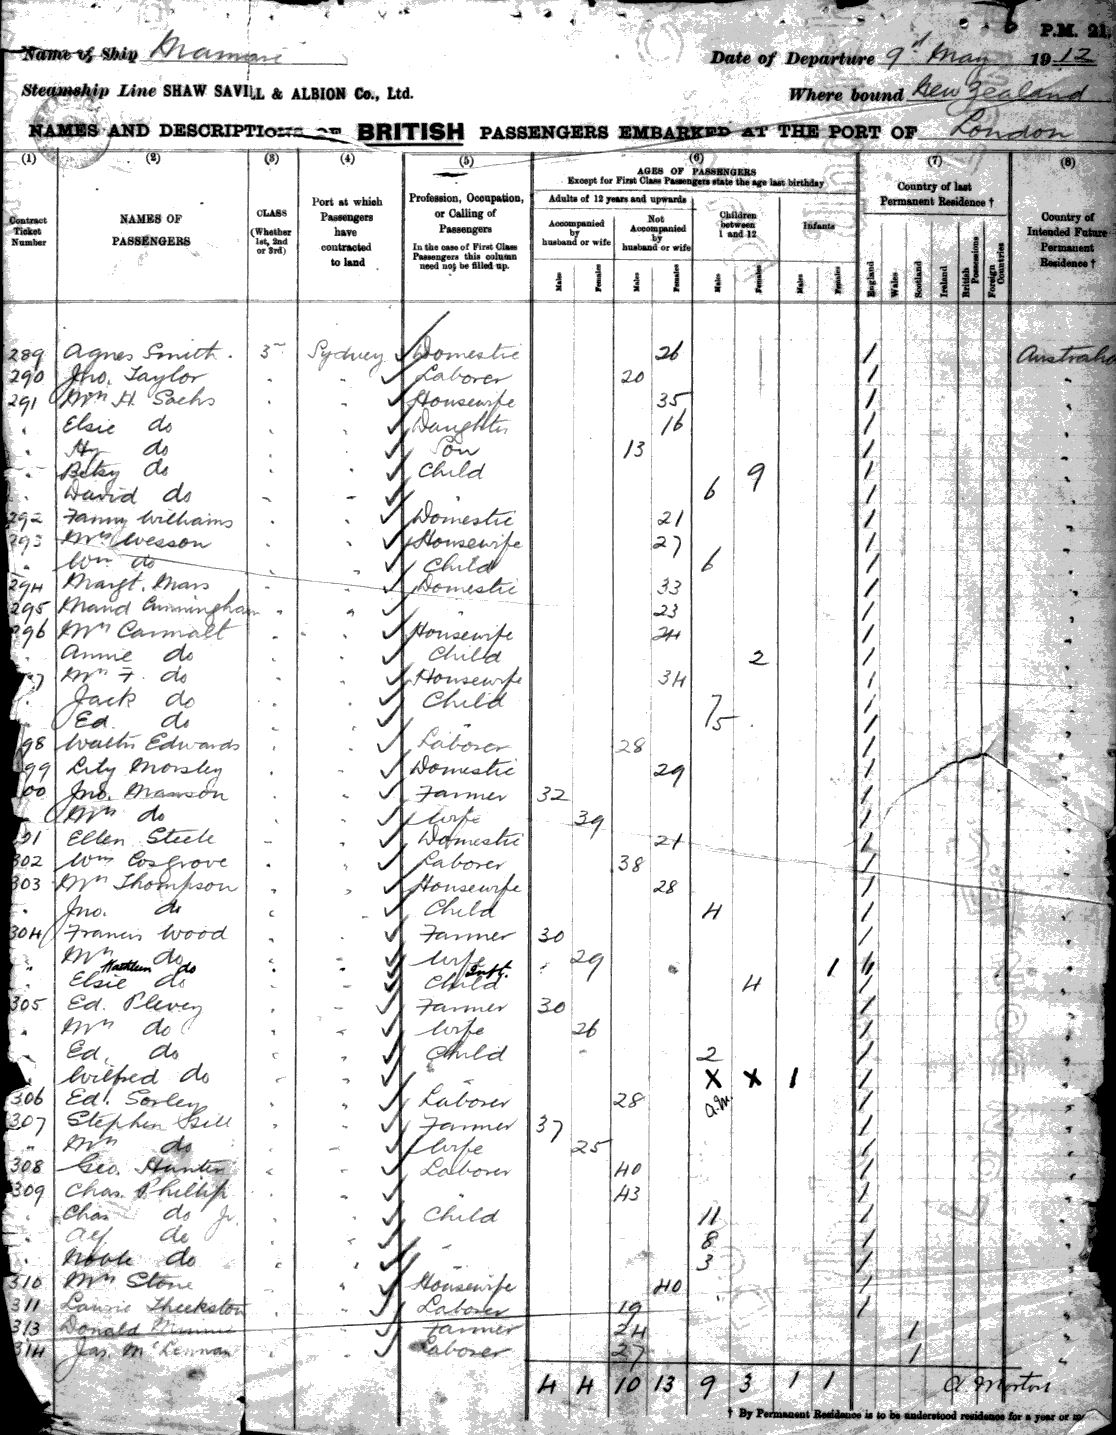 P.M. 21.
Name of Ship Mamari Date of Departure 9th May 1912
Steamship Line SHAW SAVILL & ALBION Co., Ltd. Where bound New Zealand
NAMES AND DESCRIPTIONS OF BRITISH PASSENGERS EMBARKED AT THE PORT OF London
(1) (2) (3) (4) (5) (6) (7) (8)
Contract Ticket Number
NAMES OF PASSENGERS
CLASS (Whether 1st, 2nd or 3rd)
Port at which Passengers have contracted to land
Profession, Occupation, or Calling of Passengers
In the case of First Class Passengers this column need not be filled up.
AGES OF PASSENGERS
Except for First Class Passengers state the age last birthday
Adults of 12 years and upwards
Accompanied by husband or wife
Not Accompanied by husband or wife
Children between 1 and 12
Infants
Males Females Males Females Males Females Males Females
Country of last Permanent Residence †
England Wales Scotland Ireland British Possessions Foreign Countries
Country of Intended Future Permanent Residence †
289 Agnes Smith. 3 Sydney Domestic 26 1 Australia
290 Jno. Taylor " " Laborer 20 1 "
291 Mrs H. Sachs " " Housewife 35 1 "
" Elsie do " " Daughter 16 1 "
" Hy do " " Son 13 1 "
" Betsy do " " Child 9 1 "
" David do " " " 6 1 "
292 Fanny Williams " " Domestic 21 1 "
293 Mrs Wesson " " Housewife 27 1 "
" Wm do " " Child 6 1 "
294 Margt. Mars " " Domestic 33 1 "
295 Maud Cunningham " " " 23 1 "
296 Mrs Carmalt " " Housewife 24 1 "
" Annie do " " Child 2 1 "
97 Mrs F. do " " Housewife 34 1 "
" Jack do " " Child 7 1 "
" Ed. do " " " 5 1 "
98 Walter Edwards " " Laborer 28 1 "
99 Lily Morsley " " Domestic 29 1 "
00 Jno. Manson " " Farmer 32 1 "
" Mrs do " " Wife 39 1 "
01 Ellen Steele " " Domestic 21 1 "
302 Wm Cosgrove " " Laborer 38 1 "
303 Mrs Thompson " " Housewife 28 1 "
" Jno. do " " Child 4 1 "
304 Francis Wood " " Farmer 30 1 "
" Mrs do " " Wife 29 1 "
Kathleen do Inft. 1
" Elsie do " " Child 4 1 "
305 Ed. Plevey " " Farmer 30 1 "
" Mrs do " " Wife 26 1 "
" Ed. do " " Child 2 1 "
" Wilfred do " " " X X 1 1 "
306 Ed. Sorley " " Laborer 28 a.m. 1 "
307 Stephen Gill " " Farmer 37 1 "
" Mrs do " " Wife 25 1 "
308 Geo. Hunter " " Laborer 40 1 "
309 Chas. Phillip " " " 43 1 "
" Chas do Jr. " " Child 11 1 "
" Alf do " " " 8 1 "
" Noble do " " " 3 1 "
310 Mrs Stone " " Housewife 40 1 "
311 Laurie Theekston " " Laborer 19 1 "
313 Donald " " Farmer 24 1 "
314 Jas. McLennan " " Laborer 27 1 "
4 4 10 13 9 3 1 1 A Morton
† By Permanent Residence is to be understood residence for a year or